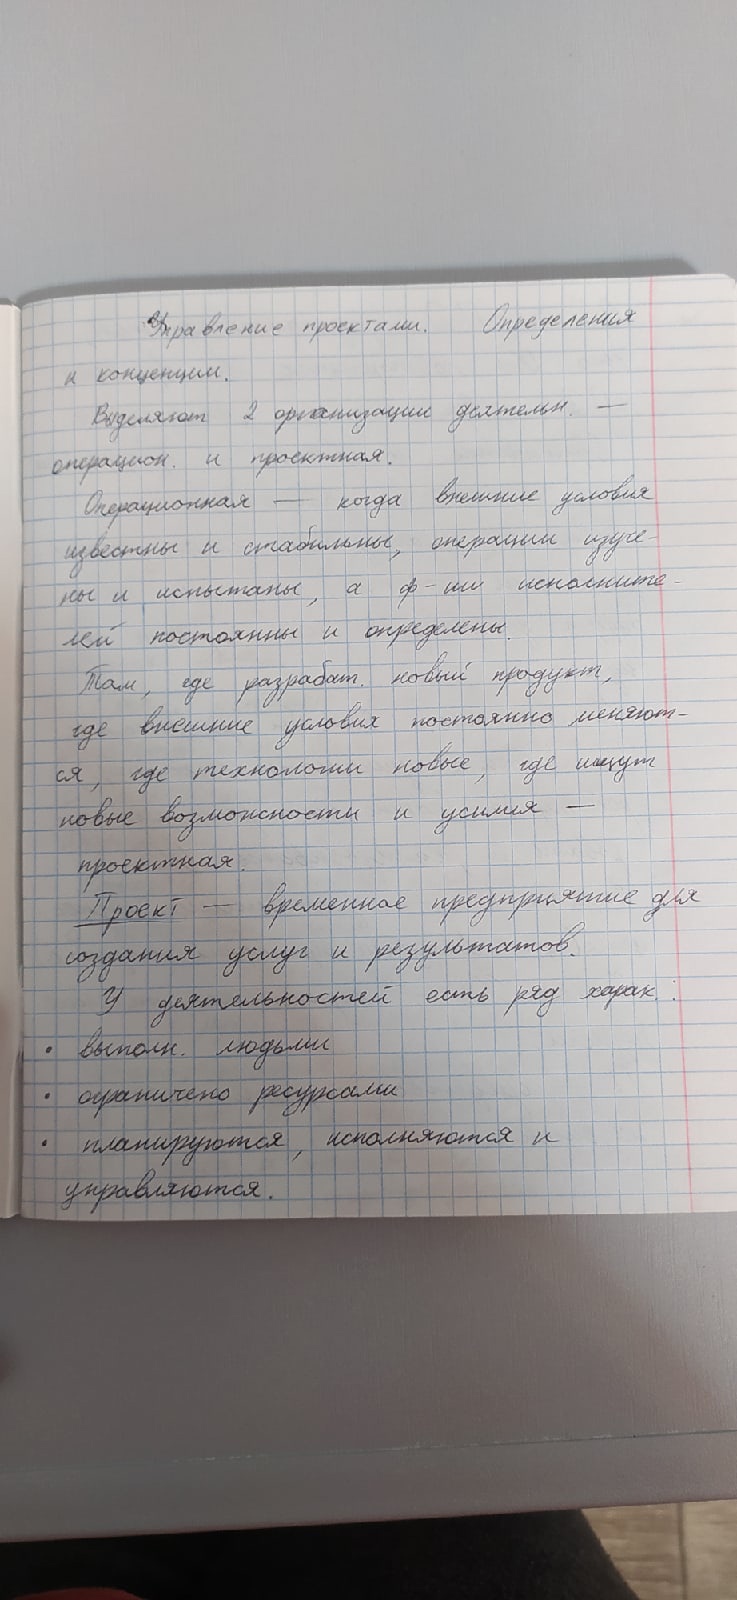 Управление проектами. Определения
и концепции.
Выделяют 2 организации деятельн. —
операцион. и проектная.
Операционная — когда внешние условия
известны и стабильны, операции изуче-
ны и испытаны, а ф-ии исполните-
лей постоянны и определены.
Там, где разрабат. новый продукт,
где внешние условия постоянно меняют-
ся, где технологии новые, где ищут
новые возможности и усилия —
проектная.
Проект — временное предприятие для
создания услуг и результатов.
У деятельностей есть ряд харак.:
• выполн. людьми
• ограничено ресурсами
• планируются, исполняются и
управляются.